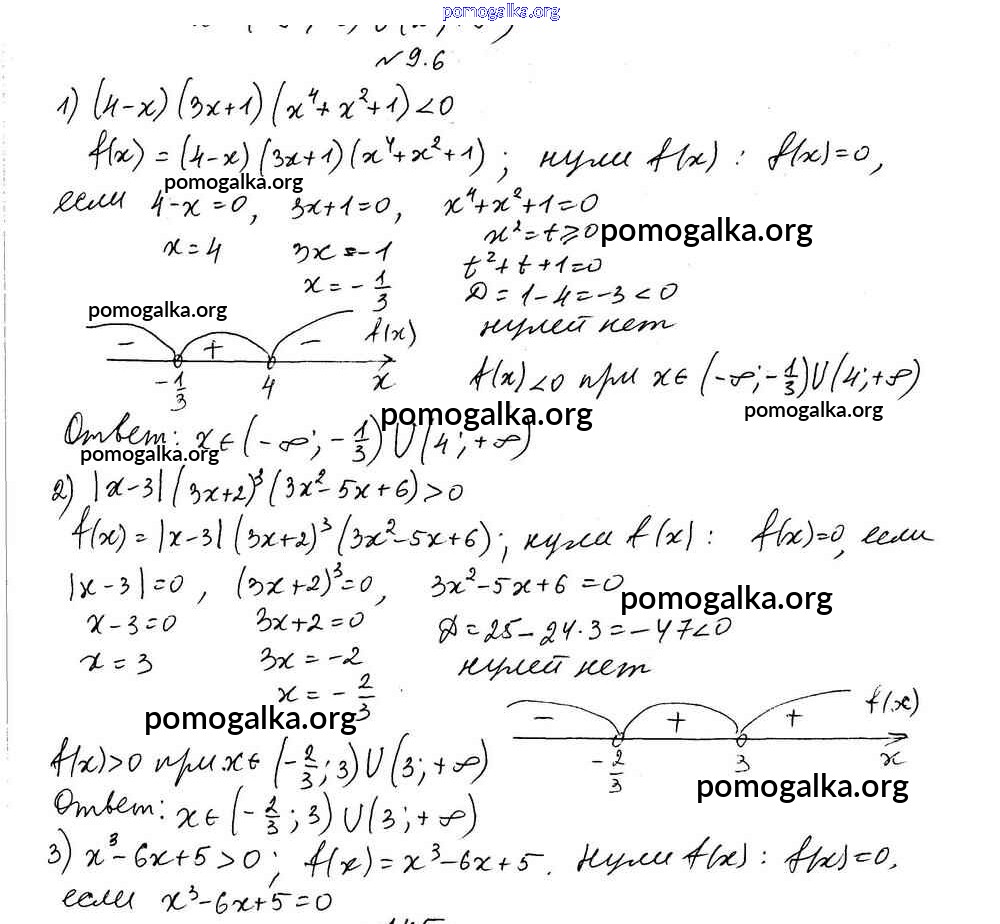 pomogalka.org
№ 9.6
1) (4-x)(3x+1)(x⁴+x²+1)<0
f(x) = (4-x)(3x+1)(x⁴+x²+1); нули f(x): f(x)=0,
pomogalka.org
если 4-x=0, 3x+1=0, x⁴+x²+1=0
x=4 3x=-1 x²=t≥0 pomogalka.org
x=-1/3 t²+t+1=0
Д=1-4=-3<0
pomogalka.org нулей нет
- + - f(x)
-1/3 4 x
f(x)<0 при x∈(-∞;-1/3)∪(4;+∞)
pomogalka.org pomogalka.org
Ответ: x∈(-∞;-1/3)∪(4;+∞)
pomogalka.org
2) |x-3|(3x+2)³(3x²-5x+6)>0
f(x)=|x-3|(3x+2)³(3x²-5x+6); нули f(x): f(x)=0, если
|x-3|=0, (3x+2)³=0, 3x²-5x+6=0
pomogalka.org
x-3=0 3x+2=0 Д=25-24·3=-47<0
x=3 3x=-2 нулей нет
x=-2/3
pomogalka.org
- + + f(x)
-2/3 3 x
f(x)>0 при x∈(-2/3;3)∪(3;+∞)
pomogalka.org
Ответ: x∈(-2/3;3)∪(3;+∞)
3) x³-6x+5>0; f(x)=x³-6x+5. Нули f(x): f(x)=0,
если x³-6x+5=0